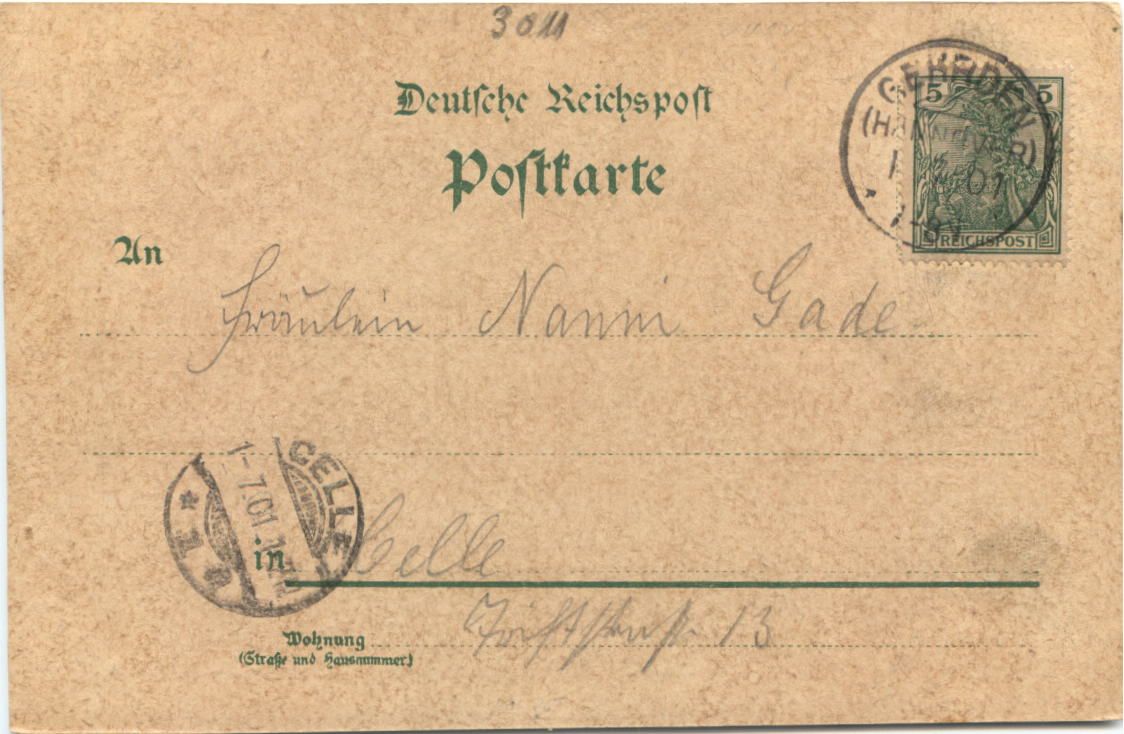 3011
Deutsche Reichspost
Postkarte
5 5
GEHRDEN
(HANNOVER)
01
REICHSPOST
An
Fräulein Nanni Gade
CELLE
1-7.01
* 1
in Celle
Triftstraße 13
Wohnung
(Straße und Hausnummer)